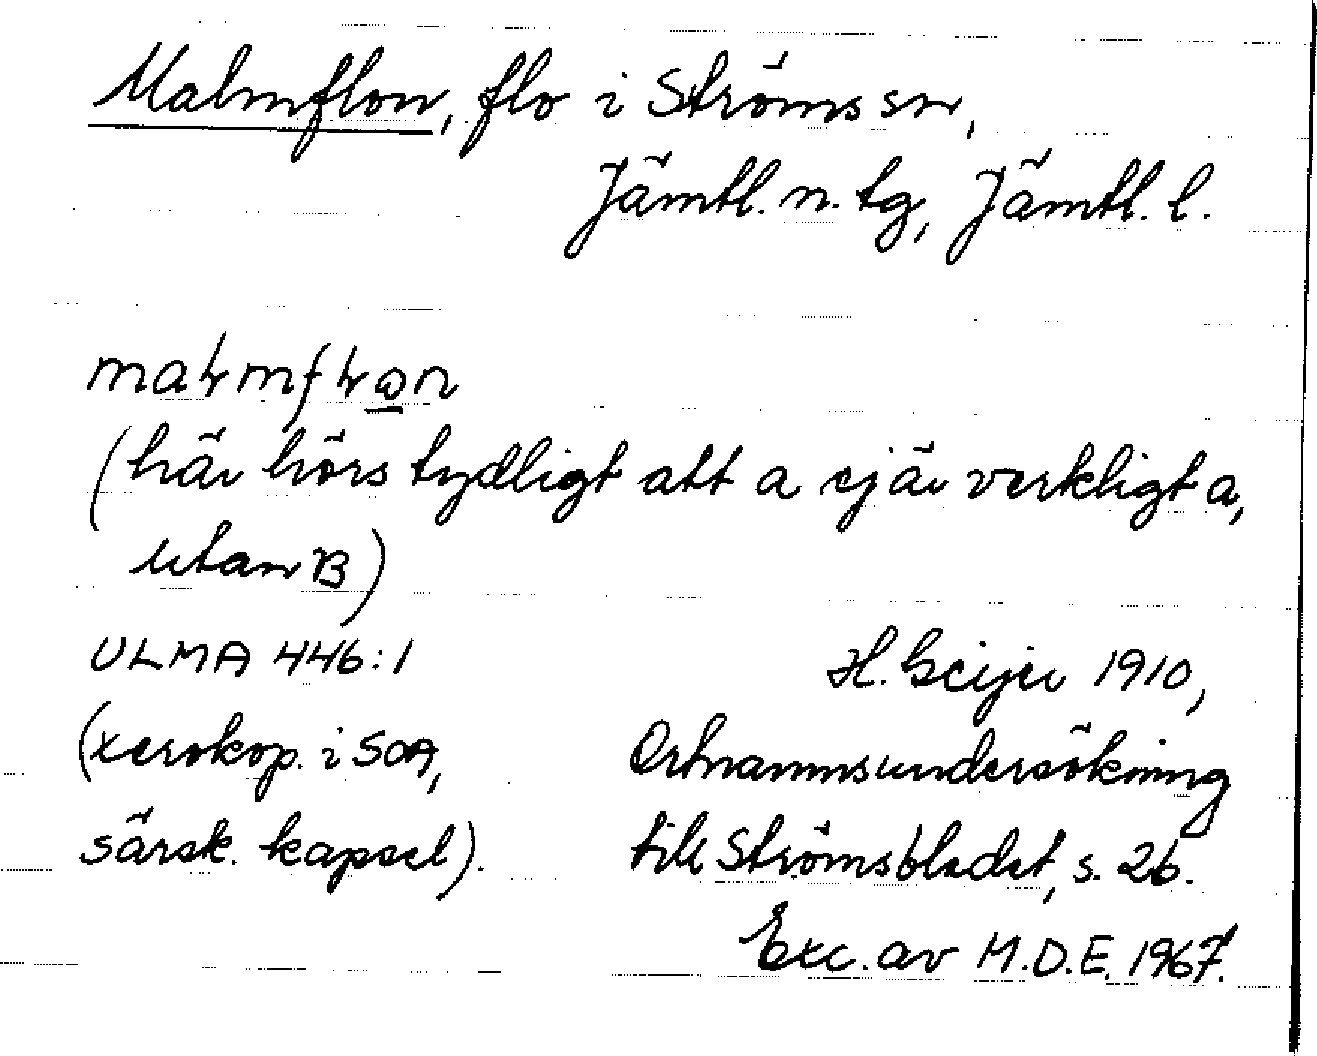 Malmflon, flo i Ströms sn,
Jämtl. n. tg, Jämtl. l.
(här hörs tydligt att a ejär verkligt a,
utan B)
ULMA 446:1
H. Geijer 1910,
(xerokop. i SOA,
Ortnamnsundersökning
särsk. kapsel).
till Strömsbladet, s. 26.
Exc. av M.D.E. 1967.